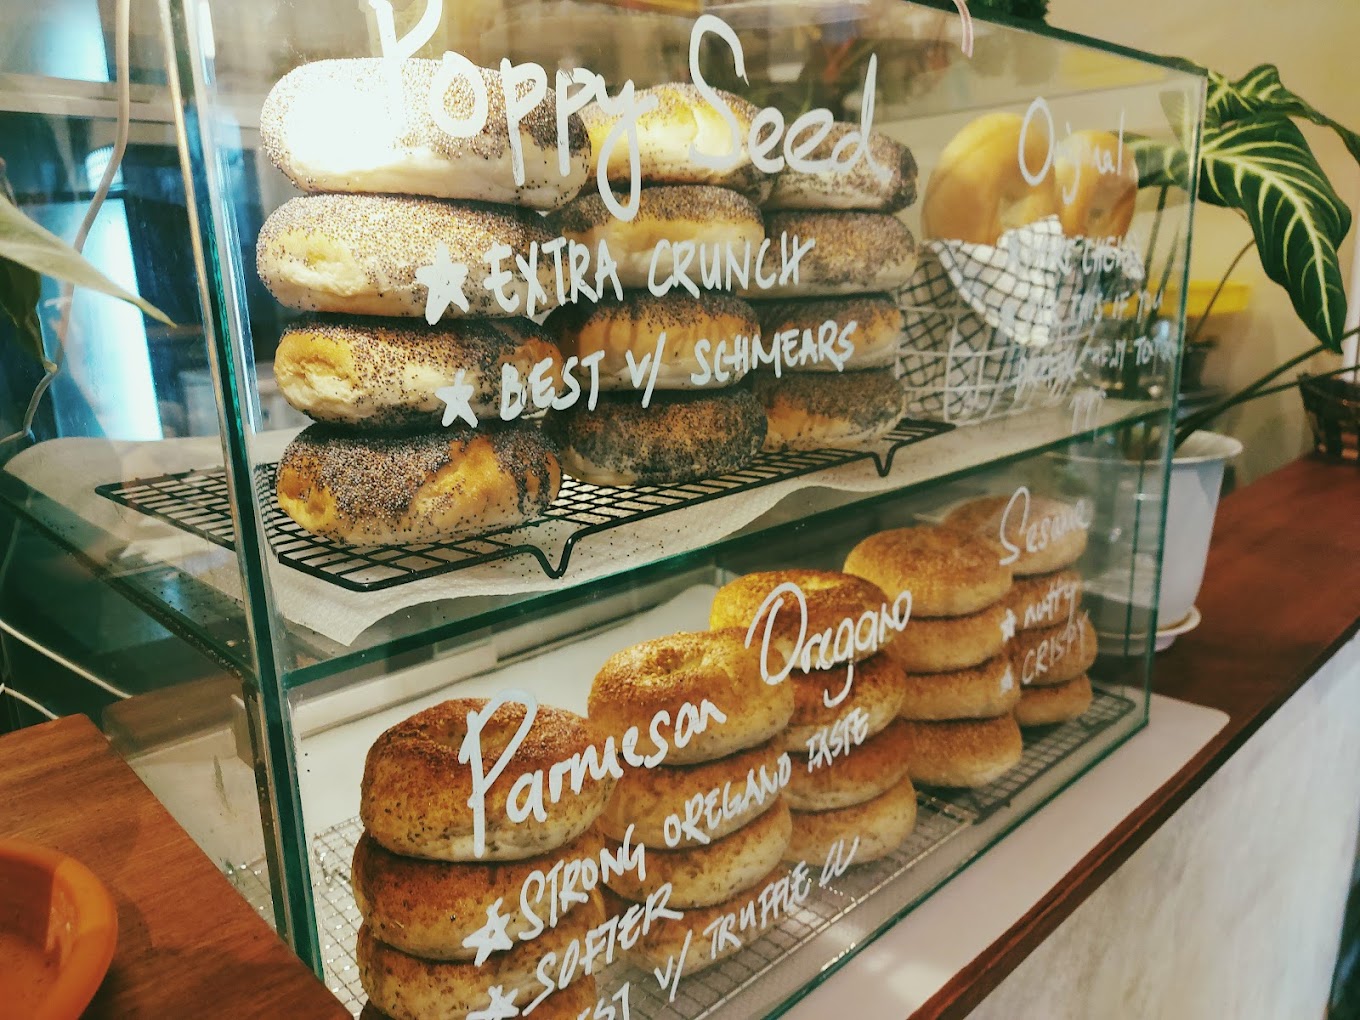 Poppy Seed
★ EXTRA CRUNCH
★ BEST W/ SCHMEARS
Original
THIS IF
Parmesan Oregano
★ STRONG OREGANO TASTE
★ SOFTER
W/ TRUFFLE
Sesame
★ nutty
★ CRISPY